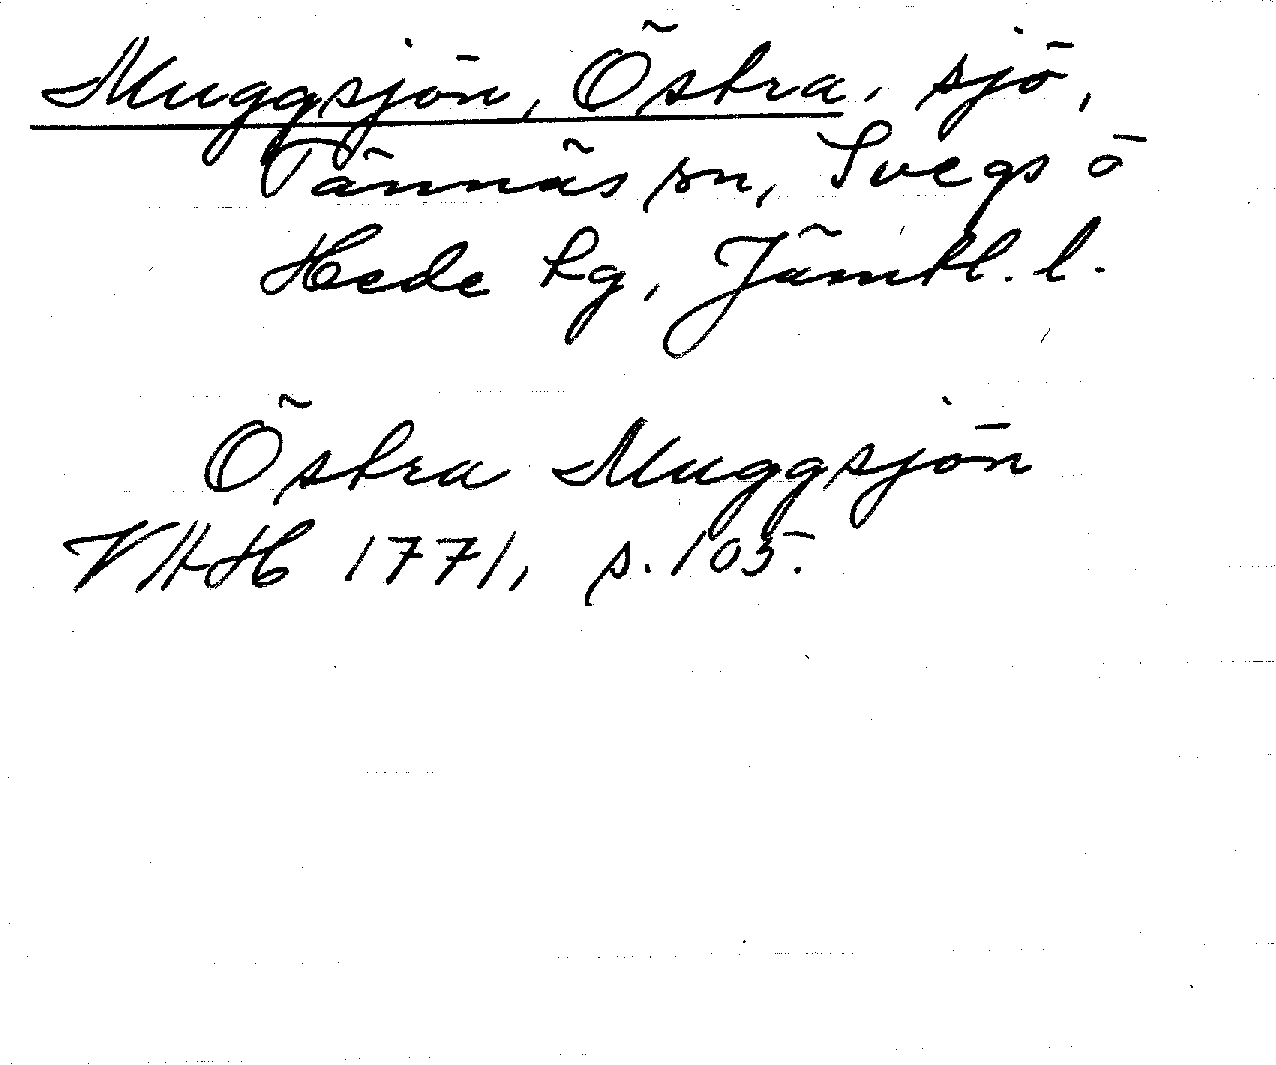 Muggsjön, Östra, sjö,
Tännäs sn, Svegs o
Hede tg, Jämtl. l.
Östra Muggsjön
VHH 1771, s. 105.